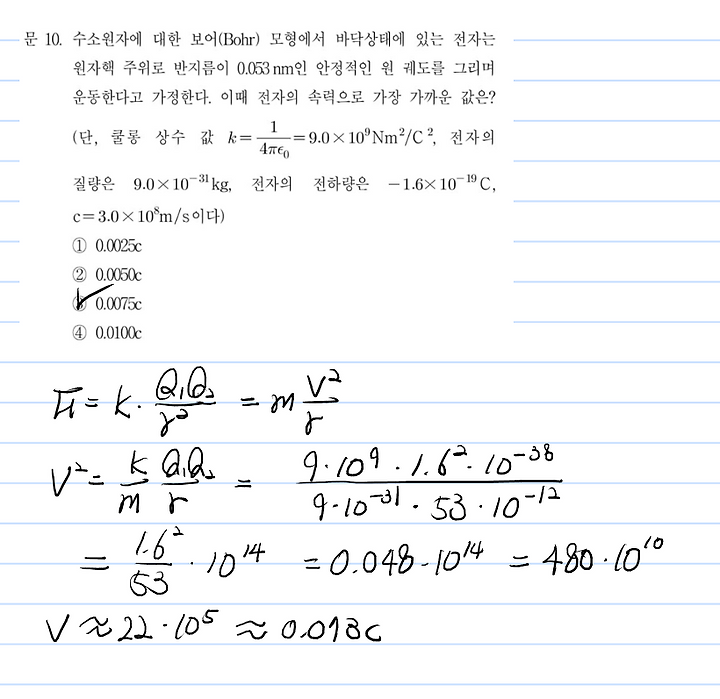 문 10. 수소원자에 대한 보어(Bohr) 모형에서 바닥상태에 있는 전자는
원자핵 주위로 반지름이 0.053 nm인 안정적인 원 궤도를 그리며
운동한다고 가정한다. 이때 전자의 속력으로 가장 가까운 값은?
(단, 쿨롱 상수 값 k = 1/4πϵ₀ = 9.0×10⁹Nm²/C², 전자의
질량은 9.0×10⁻³¹kg, 전자의 전하량은 −1.6×10⁻¹⁹C,
c = 3.0×10⁸m/s이다)
① 0.0025c
② 0.0050c
③ 0.0075c
④ 0.0100c
F = k · Q₁Q₂/r² = m V²/r
V² = k/m Q₁Q₂/r = 9·10⁹·1.6²·10⁻³⁸/9·10⁻³¹·53·10⁻¹²
= 1.6²/53 · 10¹⁴ = 0.048·10¹⁴ = 480·10¹⁰
V ≈ 22·10⁵ ≈ 0.013c